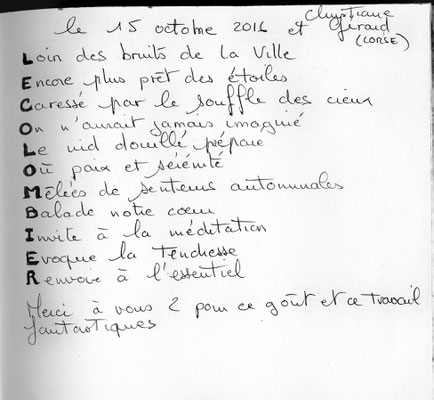 le 15 octobre 2016 et Christiane Gérard (CORSE)
Loin des bruits de la Ville
Encore plus prêt des étoiles
Caressé par le souffle des cieux
On n'aurait jamais imaginé
Le nid douillé préparé
Où paix et sérénité
Mêlées de senteurs automnales
Balade notre cœur
Invite à la méditation
Evoque la Tendresse
Renvoie à l'essentiel
Merci à vous 2 pour ce goût et ce travail
fantastiques